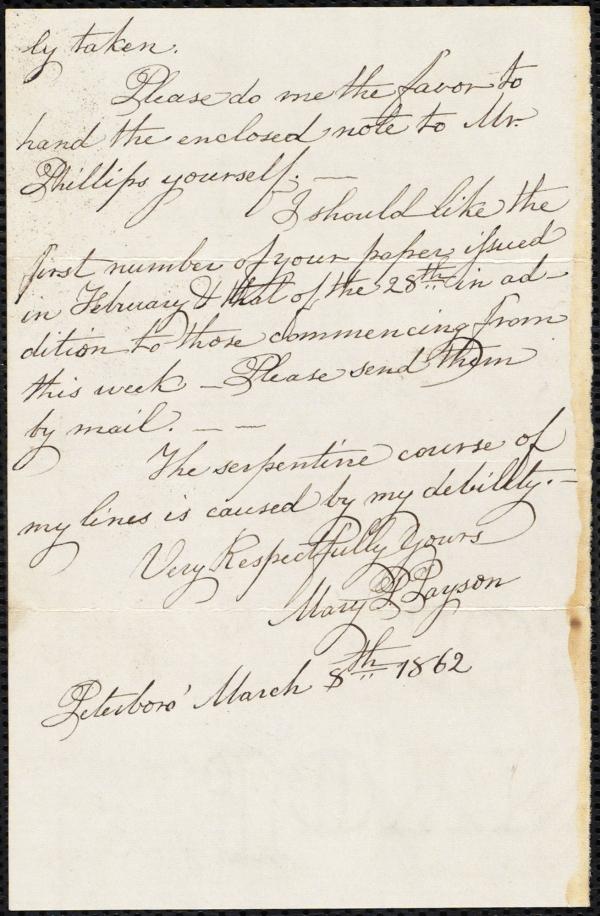 ly taken.
Please do me the favor to
hand the enclosed note to Mr.
Phillips yourself. —
I should like the
first number of your paper issued
in February & that of the 28th in ad-
dition to those commencing from
this week — Please send them
by mail. — —
The serpentine course of
my lines is caused by my debility. —
Very Respectfully Yours
Mary P. Payson
Peterboro' March 8th 1862